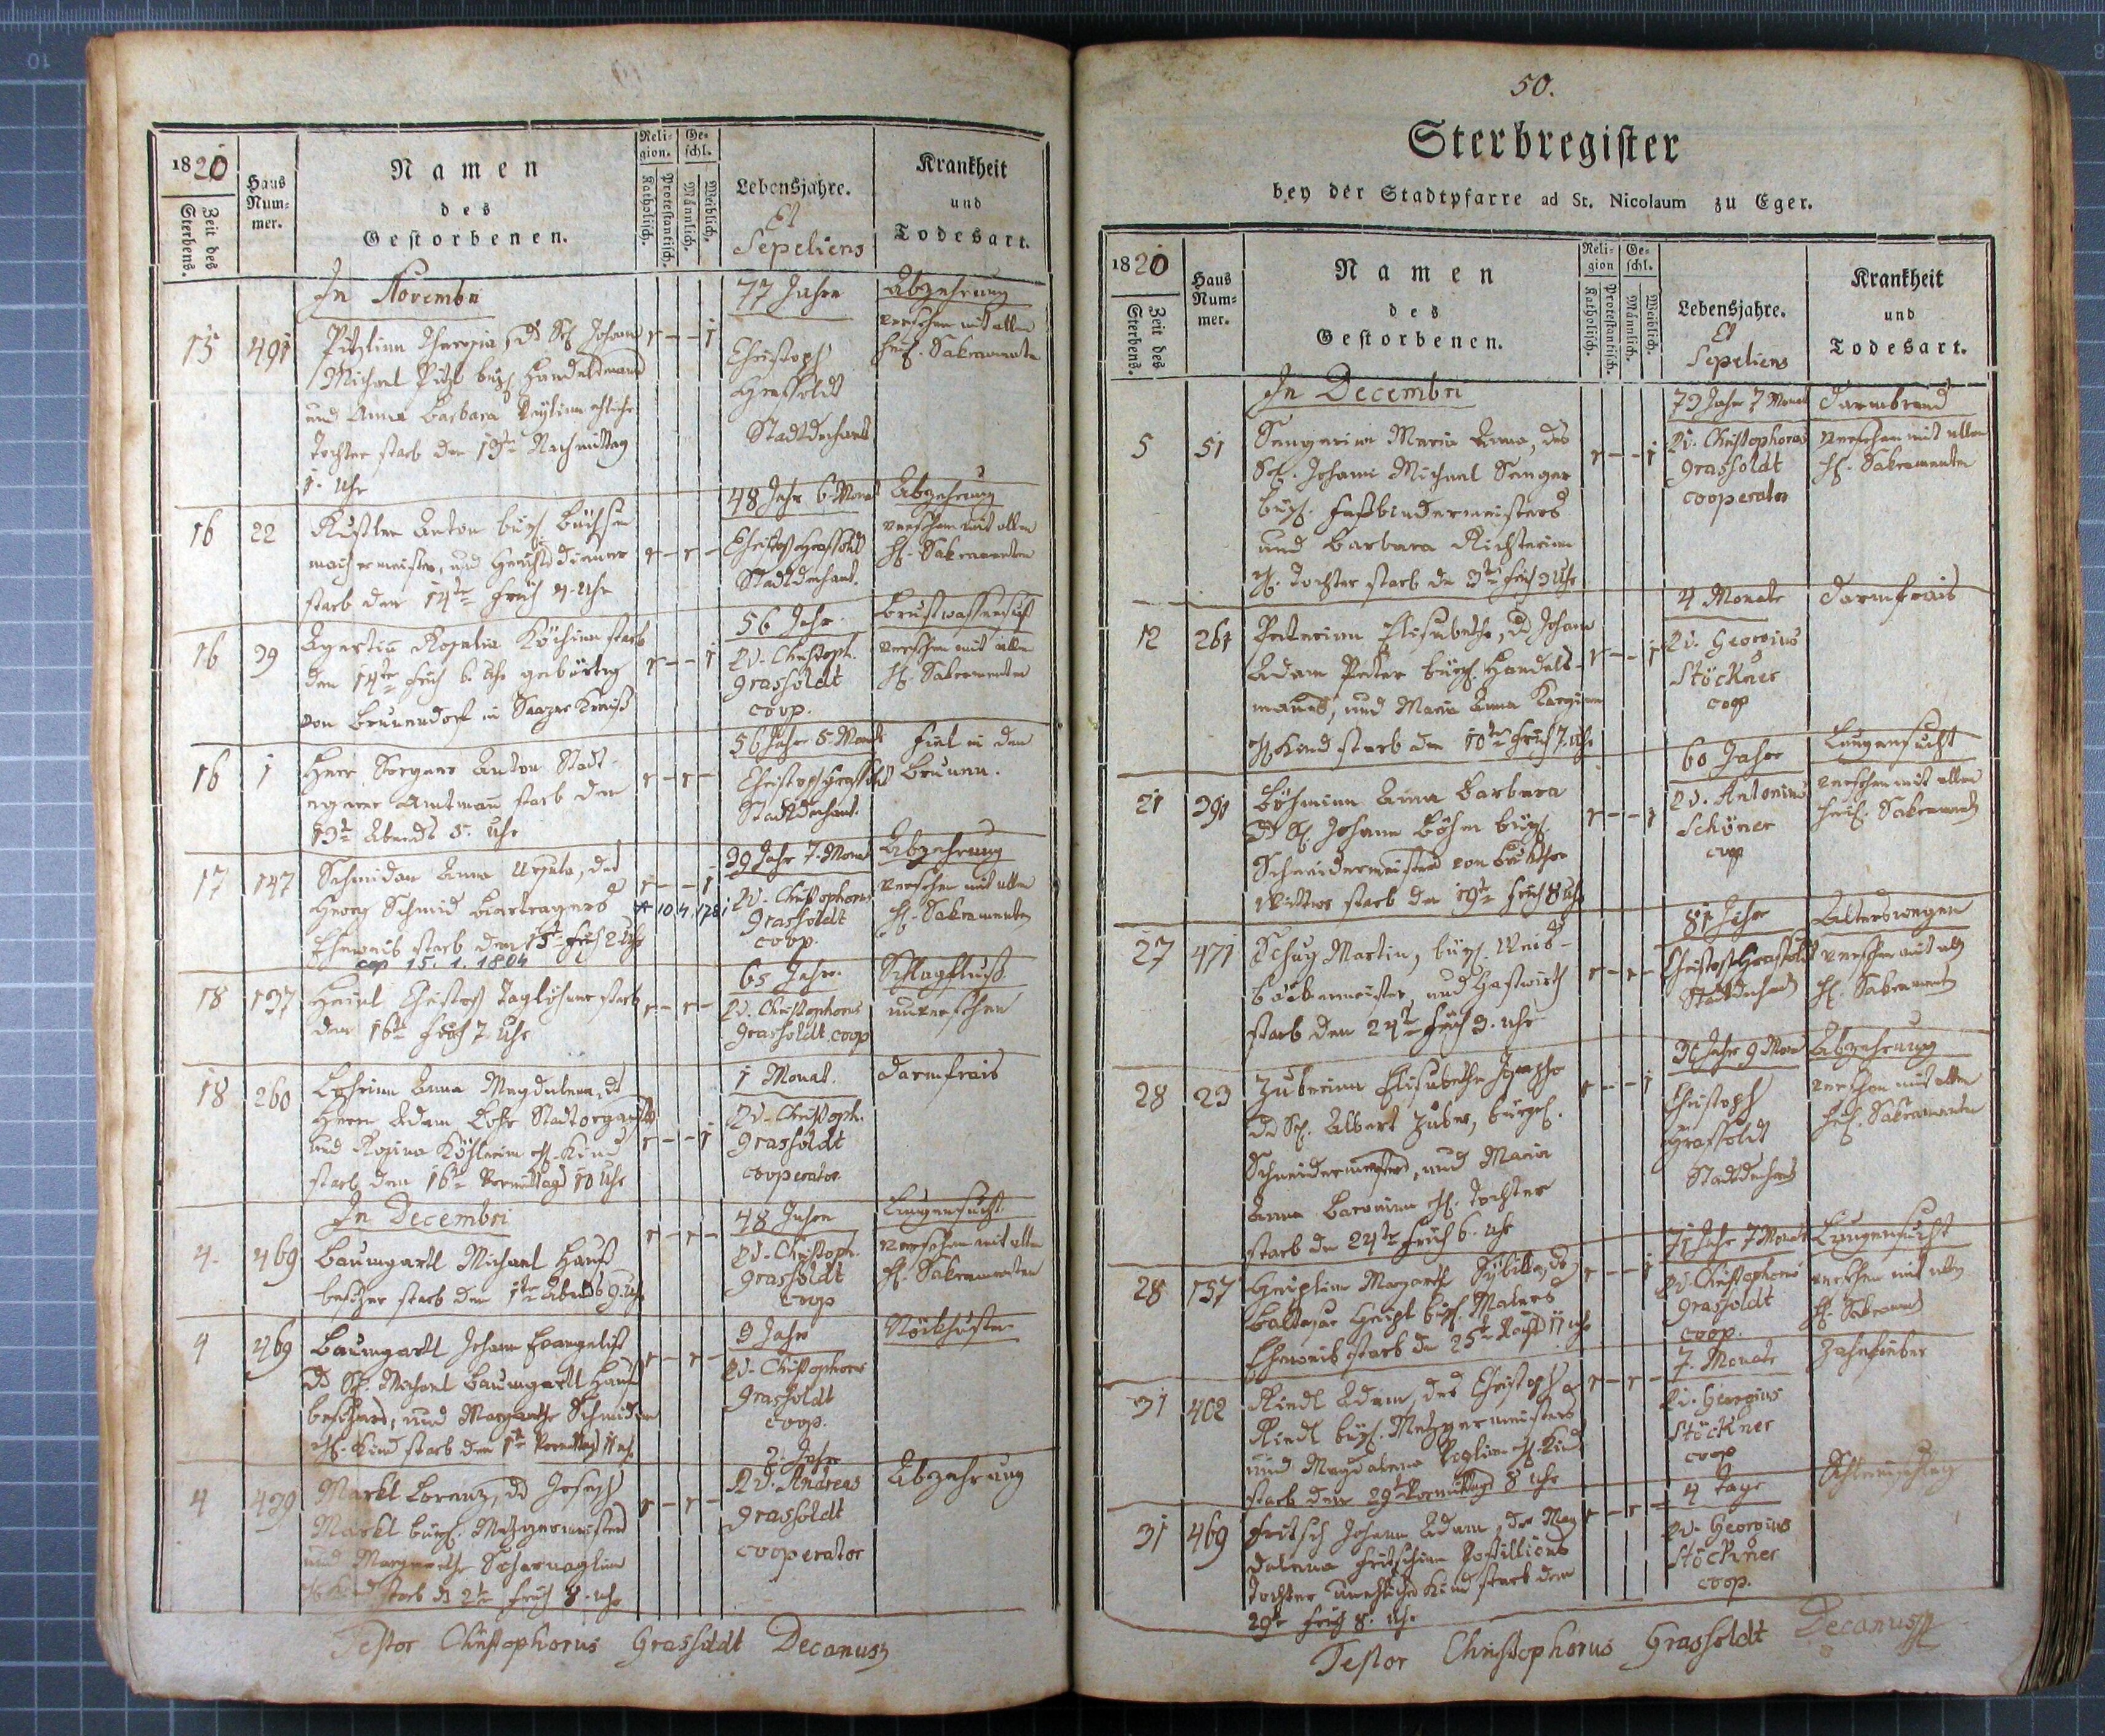 1820
Zeit des Sterbens.
Haus Num=
mer.
Namen
des
Gestorbenen.
Reli=
gion.
Katholisch.
Protestantisch.
Ge=
schl.
Männlich.
Weiblich.
Lebensjahre.
Et
Sepeliens
Krankheit
und
Todesart.
In Novembri
15
491
Theresia, Johann
Michael bürgl. Handelsmann
und Anna Barbara eheliche
Tochter starb den 13te Nachmittag
1. Uhr
r - - 1
77 Jahre
Christoph
Grassoldt
Stadtdechant
Abzehrung
versehen mit allen
heil. Sakramenten
16
22
Anton bürgl. Büchsen
machermeister, und Gerichtsdiener
starb den 14te früh 4. Uhr
r - r -
48 Jahr 6. Monat
Christoph Grassoldt
Stadtdechant.
Abzehrung
versehen mit allen
hl. Sakramenten
16
39
Rosalia Köchinn starb
den 14te früh 6. Uhr gebürtig
von Brunnersdorf in Saazer Kreiß
r - - 1
56 Jahr
Christoph.
grassoldt
coop.
Brustwassersucht
versehen mit allen
hl. Sakramenten
16
1
Herr Anton Stadt-
egerer Amtmann starb den
13te Abends 5. Uhr
r - r -
56 Jahr 5. Monat
Christoph Grassoldt
Stadtdechant.
fiel in den
Brunnen.
17
147
Schmidin Anna Ursula, des
Georg Schmid
Eheweib starb den 15te früh 2 Uhr
cop 15. 1. 1804
r - - 1
* 10. 4. 1781
39 Jahr 7. Monat
Christophorus
grassoldt
coop.
Abzehrung
versehen mit allen
hl. Sakramenten
18
137
Christoph Taglöhner starb
den 16te früh 7. Uhr
r - r -
65 Jahr.
Christophorus
grassoldt. coop
Schlagfluß
unversehen
18
260
Anna Magdalena, des
Herrn Adam Stadtorganist
und Rosina Köhlerin ehl. Kind
starb den 16te Vormittags 10 Uhr
r - - 1
1 Monat.
Christoph.
grassoldt
cooperator.
Darmfrais
In Decembri
4.
469
Baumgartl Michael Haus
besitzer starb den 1te Abends 9. Uhr
r - r -
48 Jahre
Christoph.
grassoldt
coop
Lungensucht
versehen mit allen
hl. Sakramenten
4
469
Baumgartl Johann Evangelist
des Michael Baumgartl Haus
besitzers, und Margaretha Schmidin
ehl. Kind starb den 1te Vormittag 11 Uhr
r - r -
3 Jahr
Christophorus
grassoldt
coop.
4
439
Markl Lorenz, des Joseph
Markl bürgl. Metzgermeisters
und Margaretha Scharnaglin
ehl. Kind starb d. 2te früh 8. Uhr
r - r -
2. Jahr
Andreas
grassoldt
cooperator
Abzehrung
Testor Christophorus Grassoldt Decanus
50.
Sterbregister
bey der Stadtpfarre ad St. Nicolaum zu Eger.
1820
Zeit des Sterbens.
Haus
Num=
mer.
Namen
des
Gestorbenen.
Reli=
gion
Katholisch.
Protestantisch.
Ge=
schl.
Männlich.
Weiblich.
Lebensjahre.
Et
Sepeliens
Krankheit
und
Todesart.
In Decembri
5
51
Sengerinn Maria Anna, des
Sel. Johann Michael Senger
bürgl. Faßbindermeisters
und Barbara Richterinn
ehl. Tochter starb den 3te früh 3 Uhr
r - - 1
73 Jahr 7 Monat
Christophorus
grassoldt
cooperator
Darmbrand
versehen mit allen
hl. Sakramenten
12
261
Elisabetha, des Johann
Adam bürgl. Handels-
manns, und Maria Anna
ehl. Kind starb den 10te früh 7. Uhr
r - - 1
4 Monate
Georgius
Stöckner
coop
Darmfrais
21
391
Böhminn Anna Barbara
Johann Böhm bürgl.
Schneidermeisters
Wittwe starb den 19te früh 8 Uhr
r - - 1
60 Jahr
Antonius
Schöner
coop
Lungensucht
versehen mit allen
heil. Sakramenten
27
471
Schug Martin, bürgl. Weis-
bäckermeister, und Gastwirth
starb den 24te früh 3. Uhr
r - r -
81 Jahr
Christoph Grassoldt
Stadtdechant
Alterswegen
versehen mit allen
hl. Sakramenten
28
23
Zuberinn Elisabetha Josepha
des Sel. Albert Zuber, bürgerl.
Schneidermeisters, und Maria
Anna ehl. Tochter
starb den 24te früh 6. Uhr
r - - 1
Christoph
Grassoldt
Stadtdechant
Abzehrung
versehen mit allen
heil. Sakramenten
28
137
Margareth Sybilla, des
Baltasar bürgl. Malers
Eheweib starb den 25te Nachts 11 Uhr
r - - 1
71 Jahr 7 Monat
Christophorus
grassoldt
coop.
Lungensucht
versehen mit allen
hl. Sakramenten
31
402
Riedl Adam, des Christoph
Riedl bürgl. Metzgermeisters
und Magdalena ehl. Kind
starb den 29te Vormittags 8 Uhr
r - r -
7. Monate
Georgius
Stöckner
coop
Zahnfieber
31
469
Fritsch Johann Adam, der Mag
dalena Fritschinn Postillions
Tochter unehliches Kind starb den
29te früh 8. Uhr
r - r -
4 Tage
Georgius
Stöckner
coop.
Testor Christophorus Grassoldt Decanus